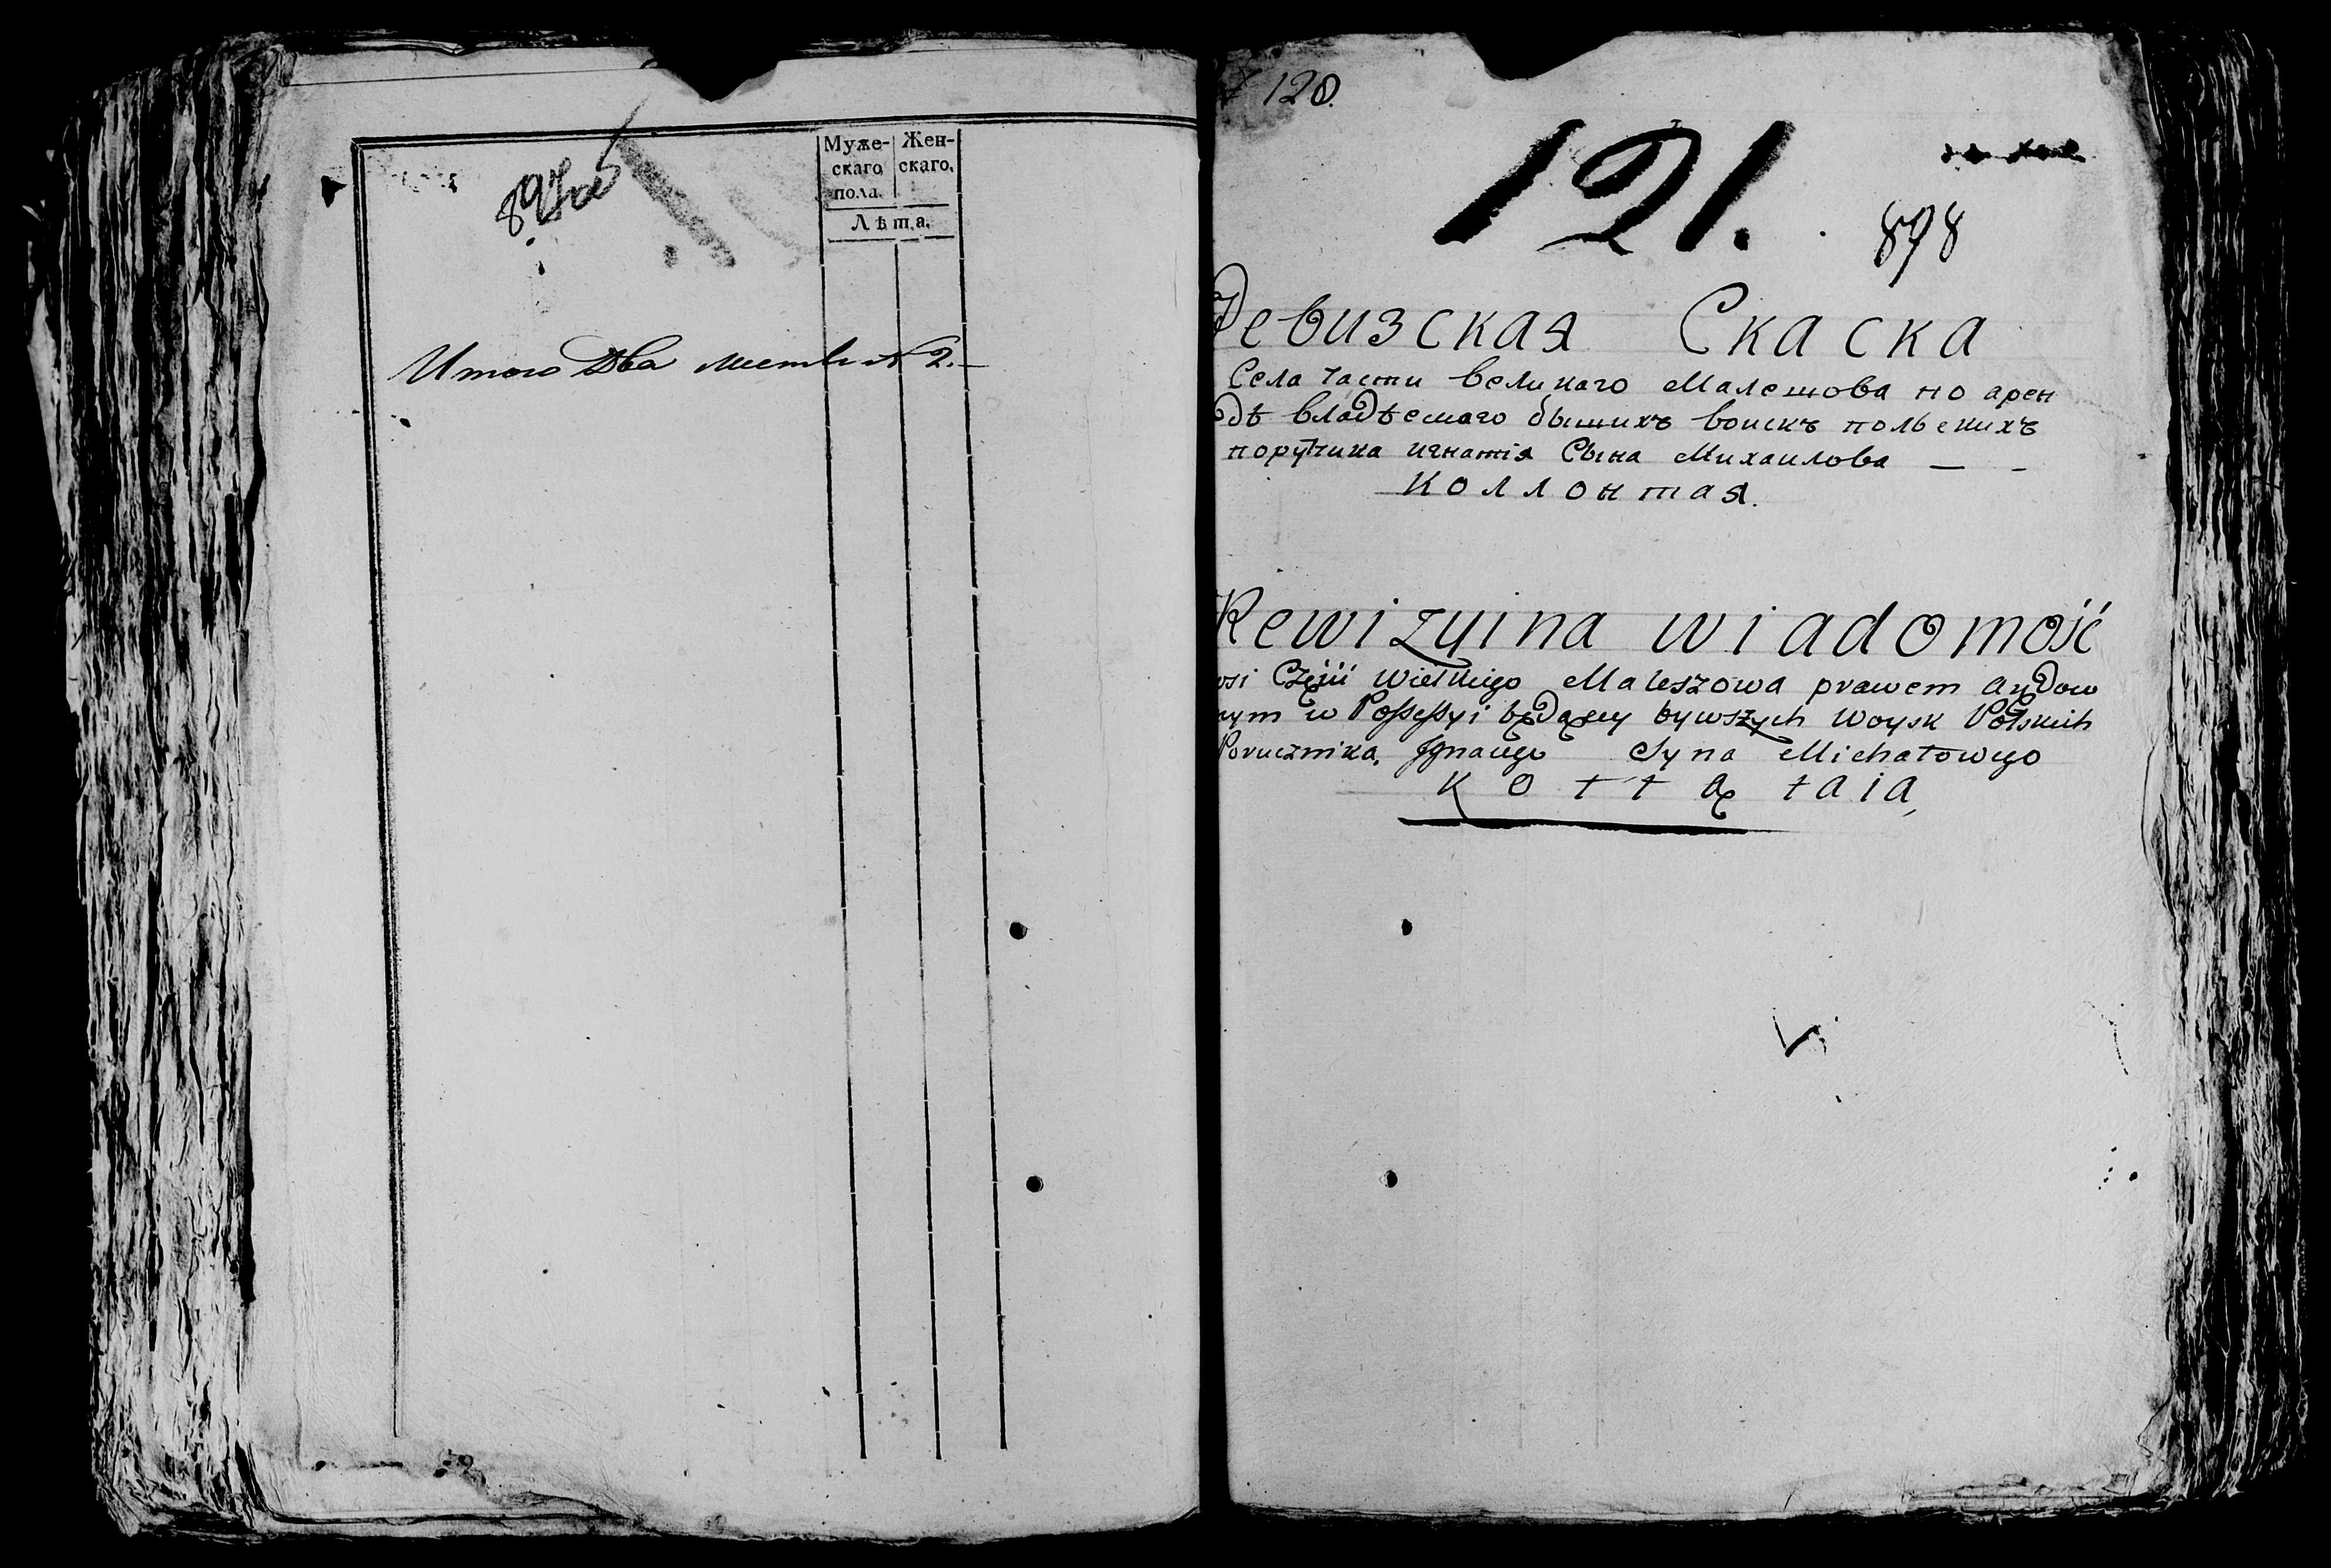 897об
Муже-
скаго
пола.
Жен-
скаго.
Лѣта.
Итого Два листа № 2.
№ 120.
121.
898
Ревизская Скаска
Села части великаго Малешова по арен
дѣ владѣемаго бывшихъ воискъ польскихъ
поручика игнатія Сына Михаилова — -
Коллонтая.
Rewizyina wiadomość
wsi Części Wielkiego Maleszowa prawem arędow
nym w Possessyi będącey bywszych Woysk Polskich
Porucznika, Ignacego Syna Michałowego
Kołłątaia,